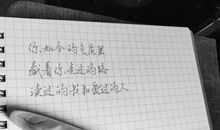 你,如今的气质里
藏着你,走过的路
读过的书和爱过的人